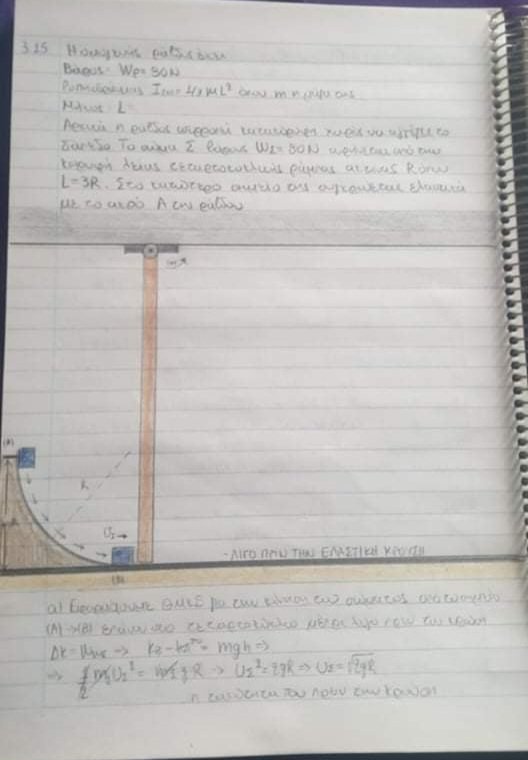 3.25 Η ομογενής ράβδος έχει
Βάρος: Wρ= 30N
Ροπή αδράνειας Icm= ML² όπου m η μάζα της
Μήκος: L
Αρχικά η ράβδος ισορροπεί κατακόρυφη χωρίς να αγγίζει το
δάπεδο. Το σώμα Σ βάρους WΣ= 30N αφήνεται από την
κορυφή λείας τεταρτοκυκλικής ράμπας ακτίνας R όπου
L=3R. Στο κατώτερο σημείο της συγκρούεται ελαστικά
με το άκρο Α της ράβδου
(A)
R
R
υΣ→
(B)
-ΛΙΓΟ ΠΡΙΝ ΤΗΝ ΕΛΑΣΤΙΚΗ ΚΡΟΥΣΗ
α) Εφαρμόζουμε ΘΜΚΕ για την κίνηση του σώματος από το σημείο
(A)→(B) επάνω στο τεταρτοκύκλιο μέχρι λίγο πριν την κρούση
mgh ⇒
⇒ ½ mΣ υΣ² = mΣ g R → υΣ² = 2gR ⇒ υΣ = √2gR
η ταχύτητα του πριν την κρούση